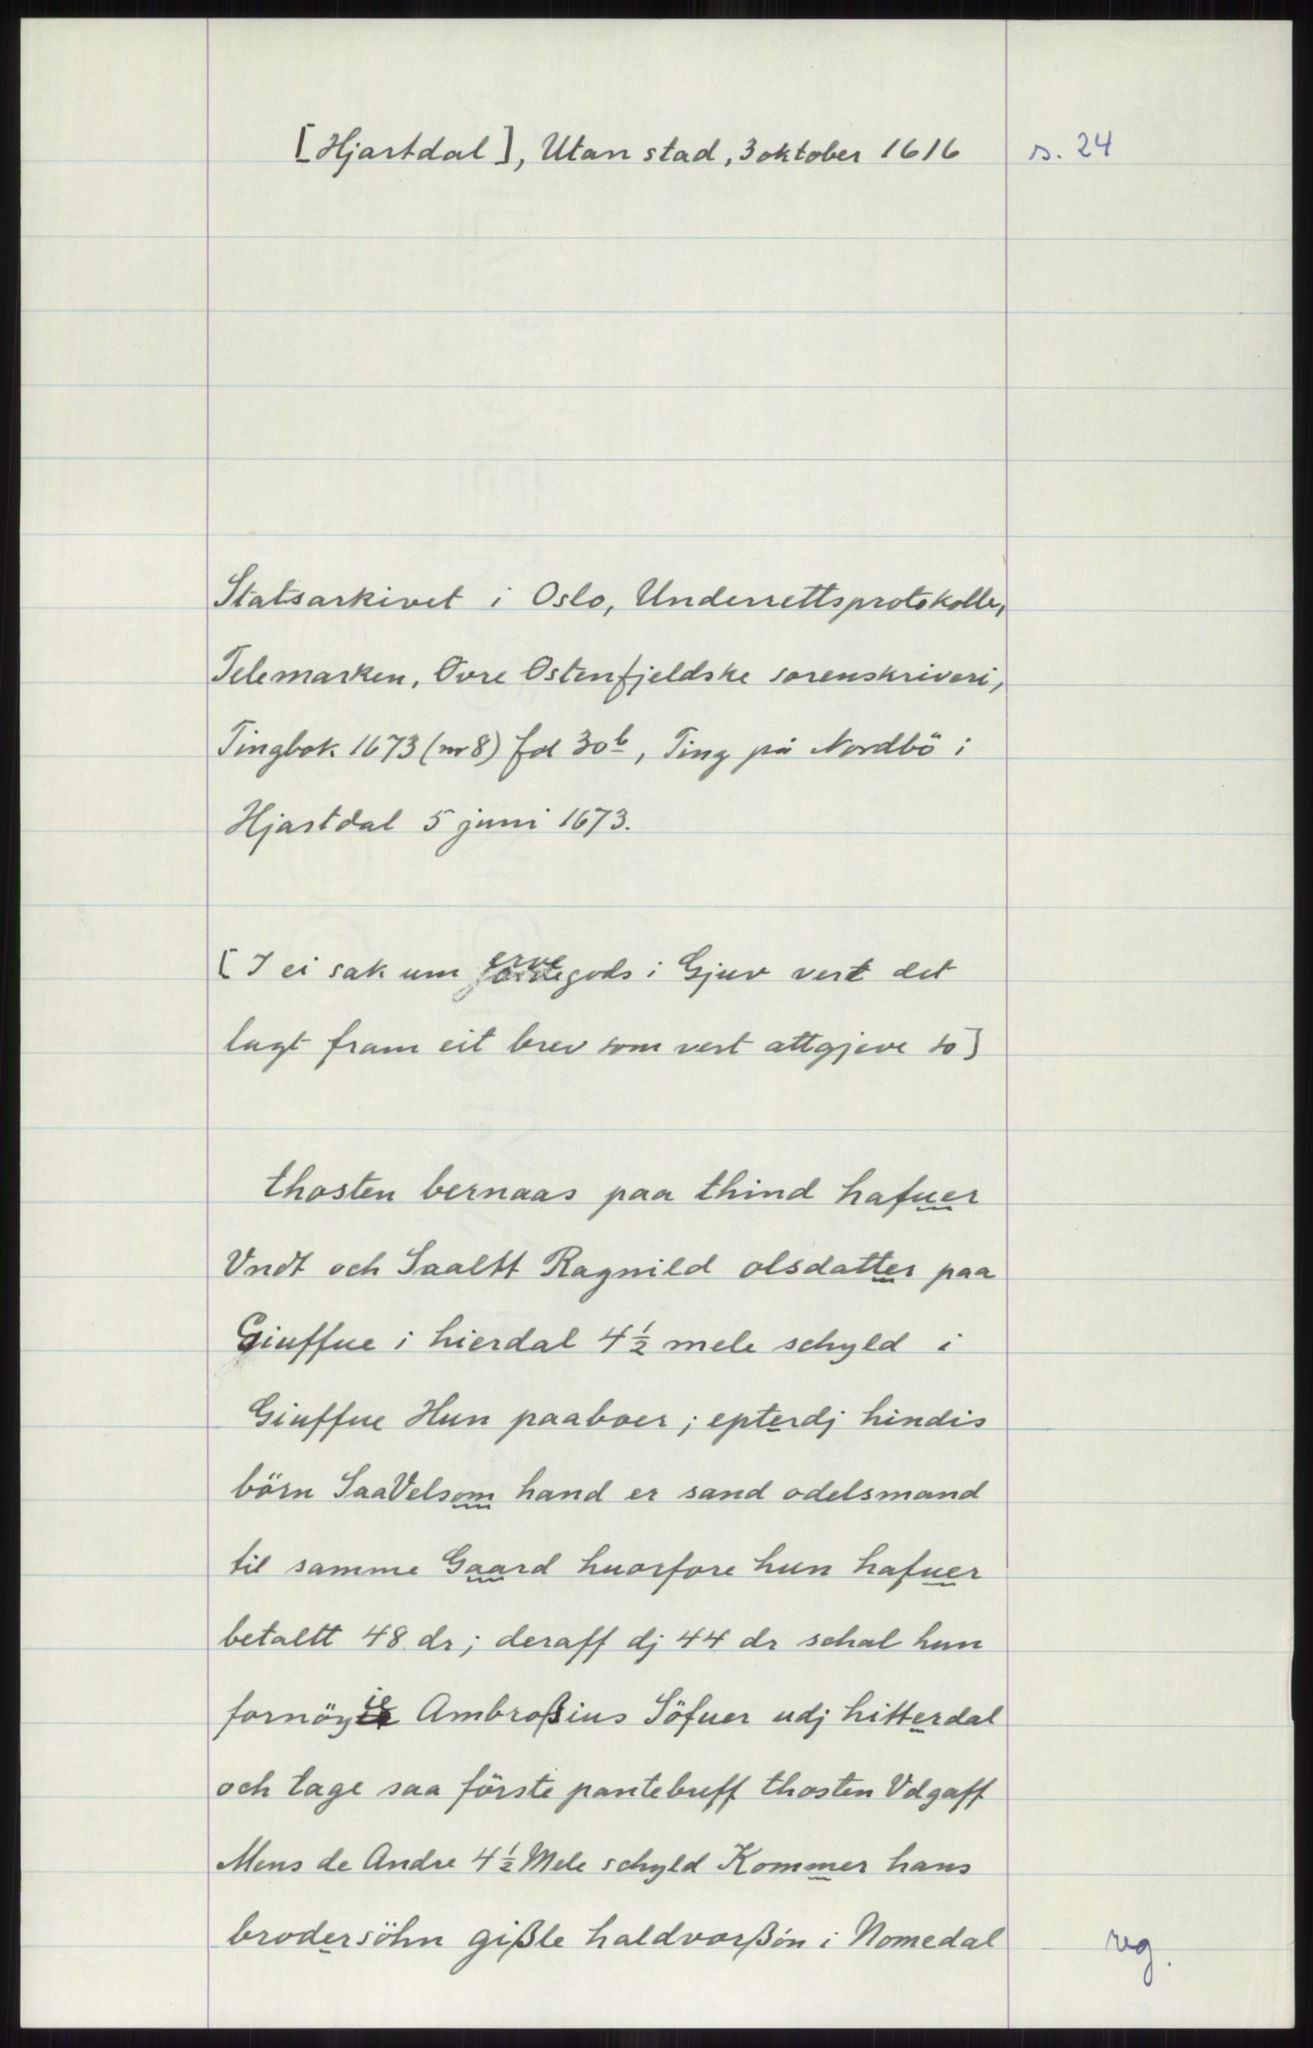 [Hjartdal], Utan stad, 3 oktober 1616 s. 24
Statsarkivet i Oslo, Underrettsprotokoller,
Telemarken, Øvre Østenfjeldske sorenskriveri,
Tingbok 1673 (nr 8) fol 30b, Ting på Nordbö i
Hjartdal 5 juni 1673.
[I ei sak um ervegods i Gjuv vert det
lagt fram eit brev som vert attgjeve so]
thosten bernaas paa thind hafuer
Vndt och Saaltt Ragnild olsdatter paa
Giuffue i hierdal 4 1/2 mele schyld i
Giuffue Hun paaboer; epterdj hindis
börn SaaVelsom hand er sand odelsmand
til samme Gaard huorfore hun hafuer
betaltt 48 dr; deraff dj 44 dr schal hun
fornöyie Ambroßius Söfuer udj hitterdal
och tage saa förste pantebreff thosten Vdgaff
Mens de Andre 4 1/2 Mele schyld Kommer hans
brodersöhn gißle haldvorßön i Nomedal
reg.